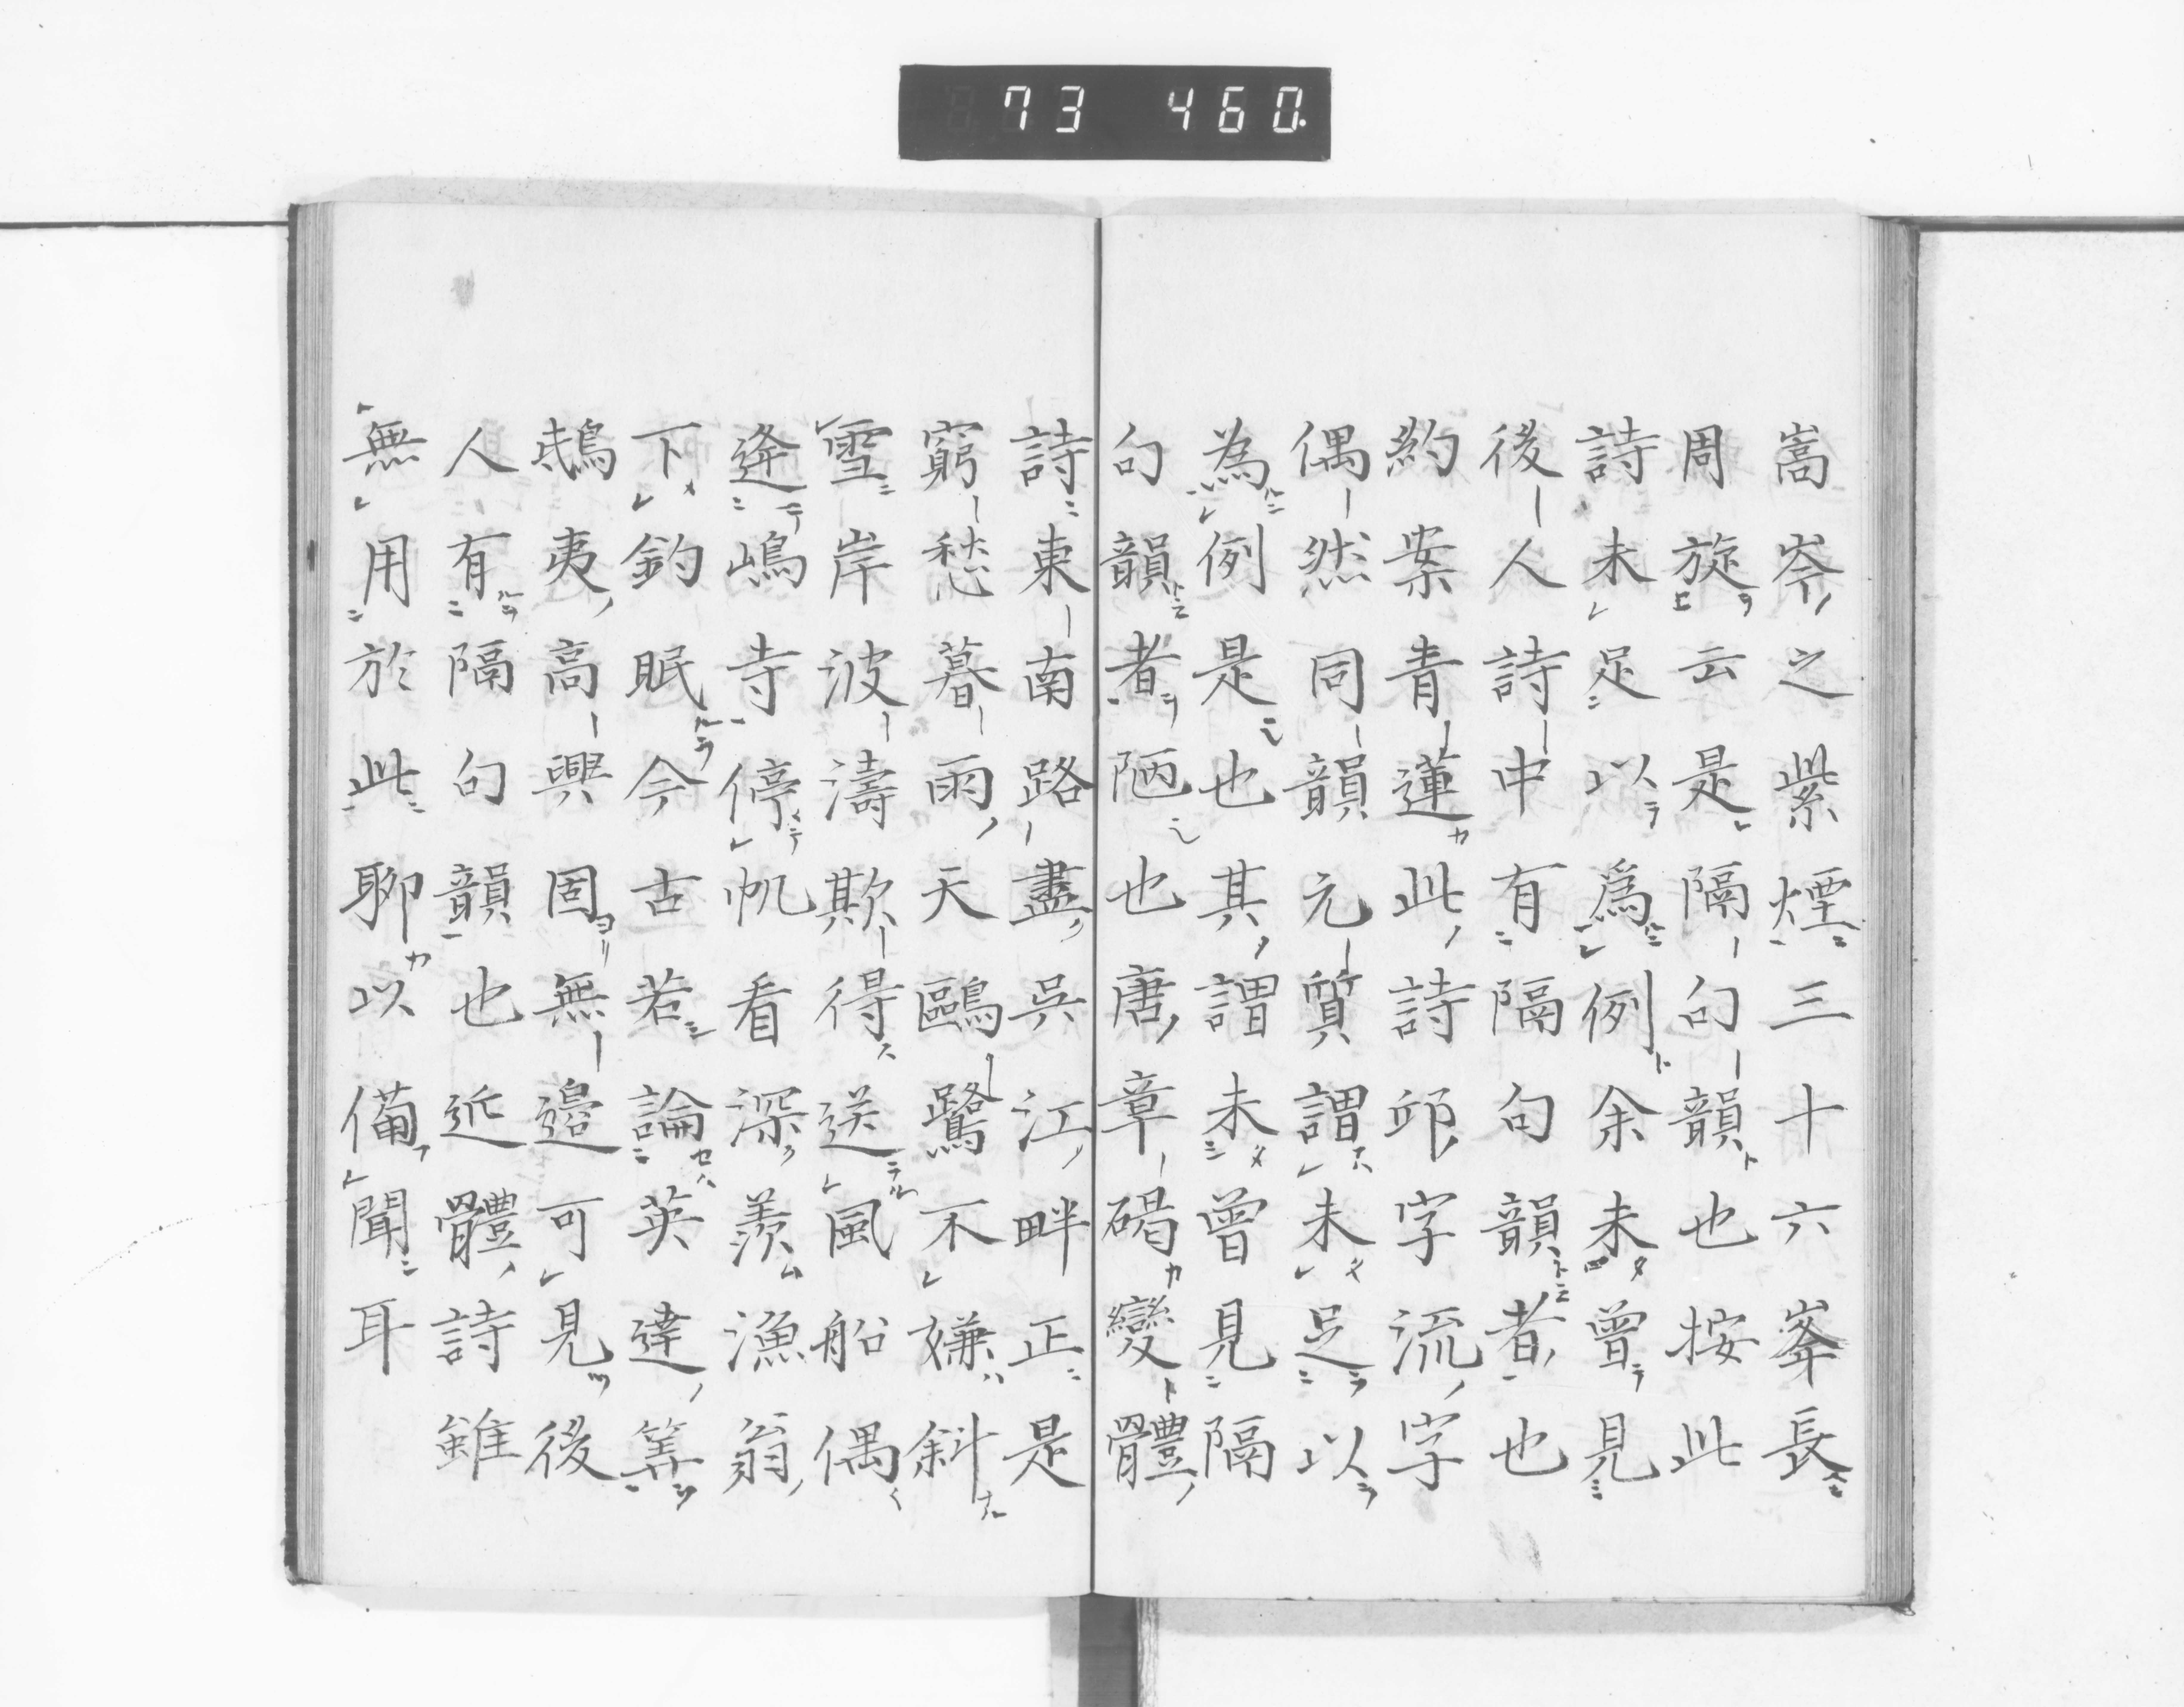 73 460.
嵩岑之紫煙三十六峯長
周旋云是隔句韻也按此
詩未足以爲例余未曾見
後人詩中有隔句韻者也
約案青蓮此詩邱字流字
偶然同韻元質謂未足以
為例是也其謂未曾見隔
句韻者陋也唐章碣變體
詩東南路盡吳江畔正是
窮愁暮雨天鷗鷺不嫌斜
雪岸波濤欺得送風船偶
逢嶋寺停帆看深羨漁翁
下釣眠今古若論英達筭
鴟夷高興固無邉可見後
人有隔句韻也近體詩雖
無用於此聊以備聞耳